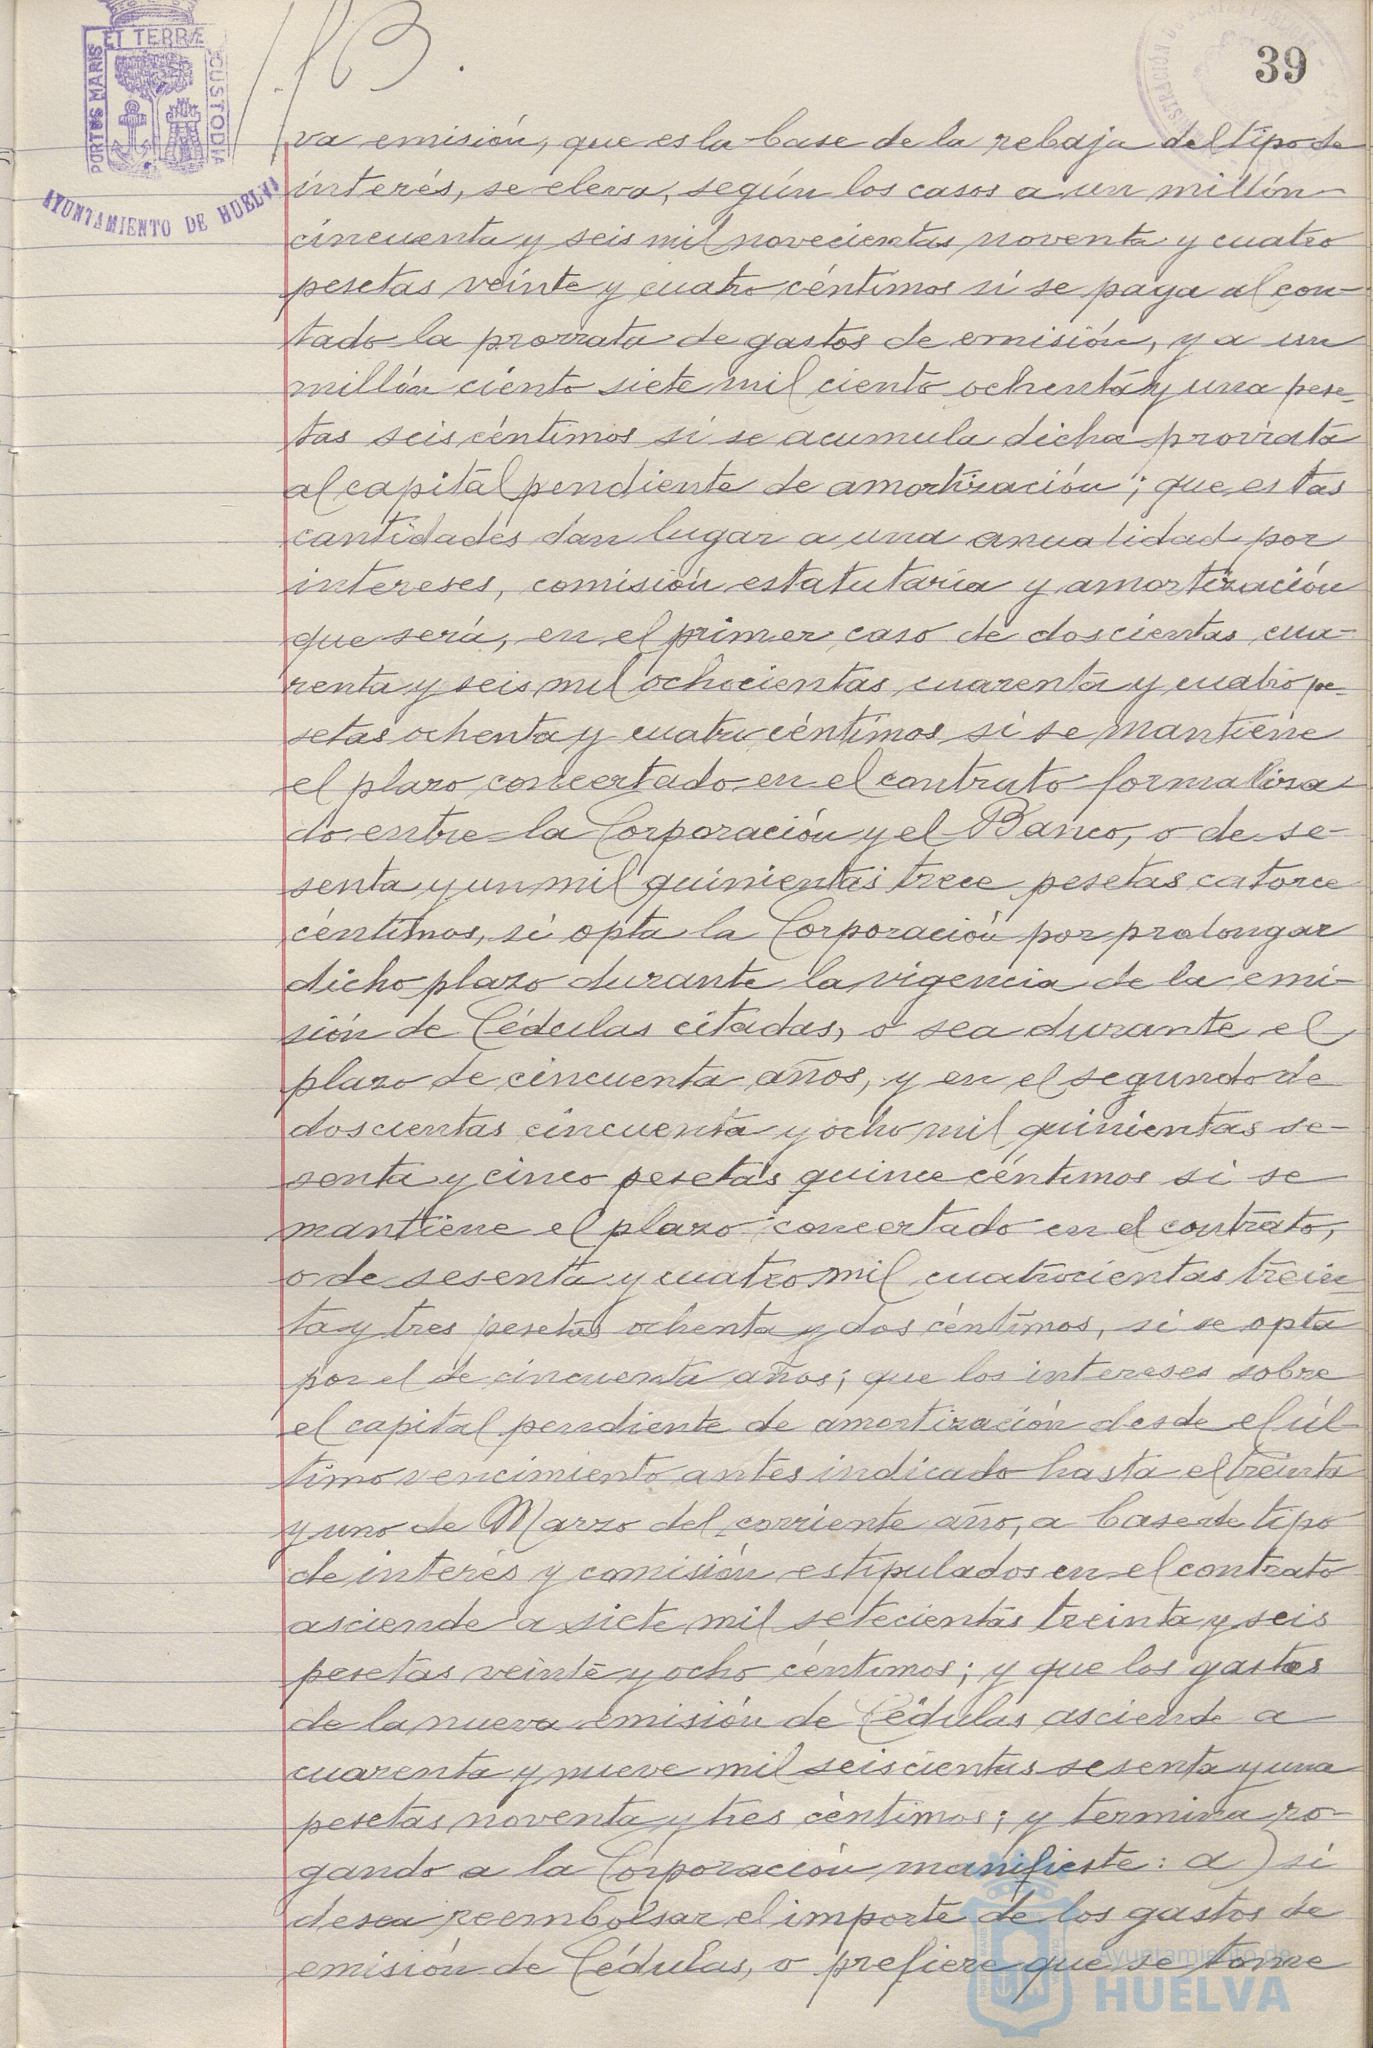 ET TERRÆ
PORTUS MARIS
CUSTODIA
AYUNTAMIENTO DE HUELVA
39
va emisión, que es la base de la rebaja del tipo de
interés, se eleva, según los casos a un millón
cincuenta y seis mil novecientas noventa y cuatro
pesetas veinte y cuatro céntimos si se paga al con-
tado la prorrata de gastos de emisión, y a un
millón ciento siete mil ciento ochenta y una pese-
tas seis céntimos si se acumula dicha prorrata
al capital pendiente de amortización; que estas
cantidades dan lugar a una anualidad por
intereses, comisión estatutaria y amortización
que será, en el primer caso de doscientas cua-
renta y seis mil ochocientas cuarenta y cuatro pe-
setas ochenta y cuatro céntimos si se mantiene
el plazo concertado en el contrato formaliza
do entre la Corporación y el Banco, o de se-
senta y un mil quinientas trece pesetas catorce
céntimos, si opta la Corporación por prolongar
dicho plazo durante la vigencia de la emi-
sión de Cédulas citadas, o sea durante el
plazo de cincuenta años, y en el segundo de
doscientas cincuenta y ocho mil quinientas se-
senta y cinco pesetas quince céntimos si se
mantiene el plazo concertado en el contrato,
o de sesenta y cuatro mil cuatrocientas trein-
ta y tres pesetas ochenta y dos céntimos, si se opta
por el de cincuenta años; que los intereses sobre
el capital pendiente de amortización desde el úl-
timo vencimiento antes indicado hasta el treinta
y uno de Marzo del corriente año, a base de tipo
de interés y comisión estipulados en el contrato
asciende a siete mil setecientas treinta y seis
pesetas veinte y ocho céntimos; y que los gastos
de la nueva emisión de Cédulas asciende a
cuarenta y nueve mil seiscientas sesenta y una
pesetas noventa y tres céntimos; y termina ro-
gando a la Corporación manifieste: a) si
desea reembolsar el importe de los gastos de
emisión de Cédulas, o prefiere que se tome
Ayuntamiento de
HUELVA